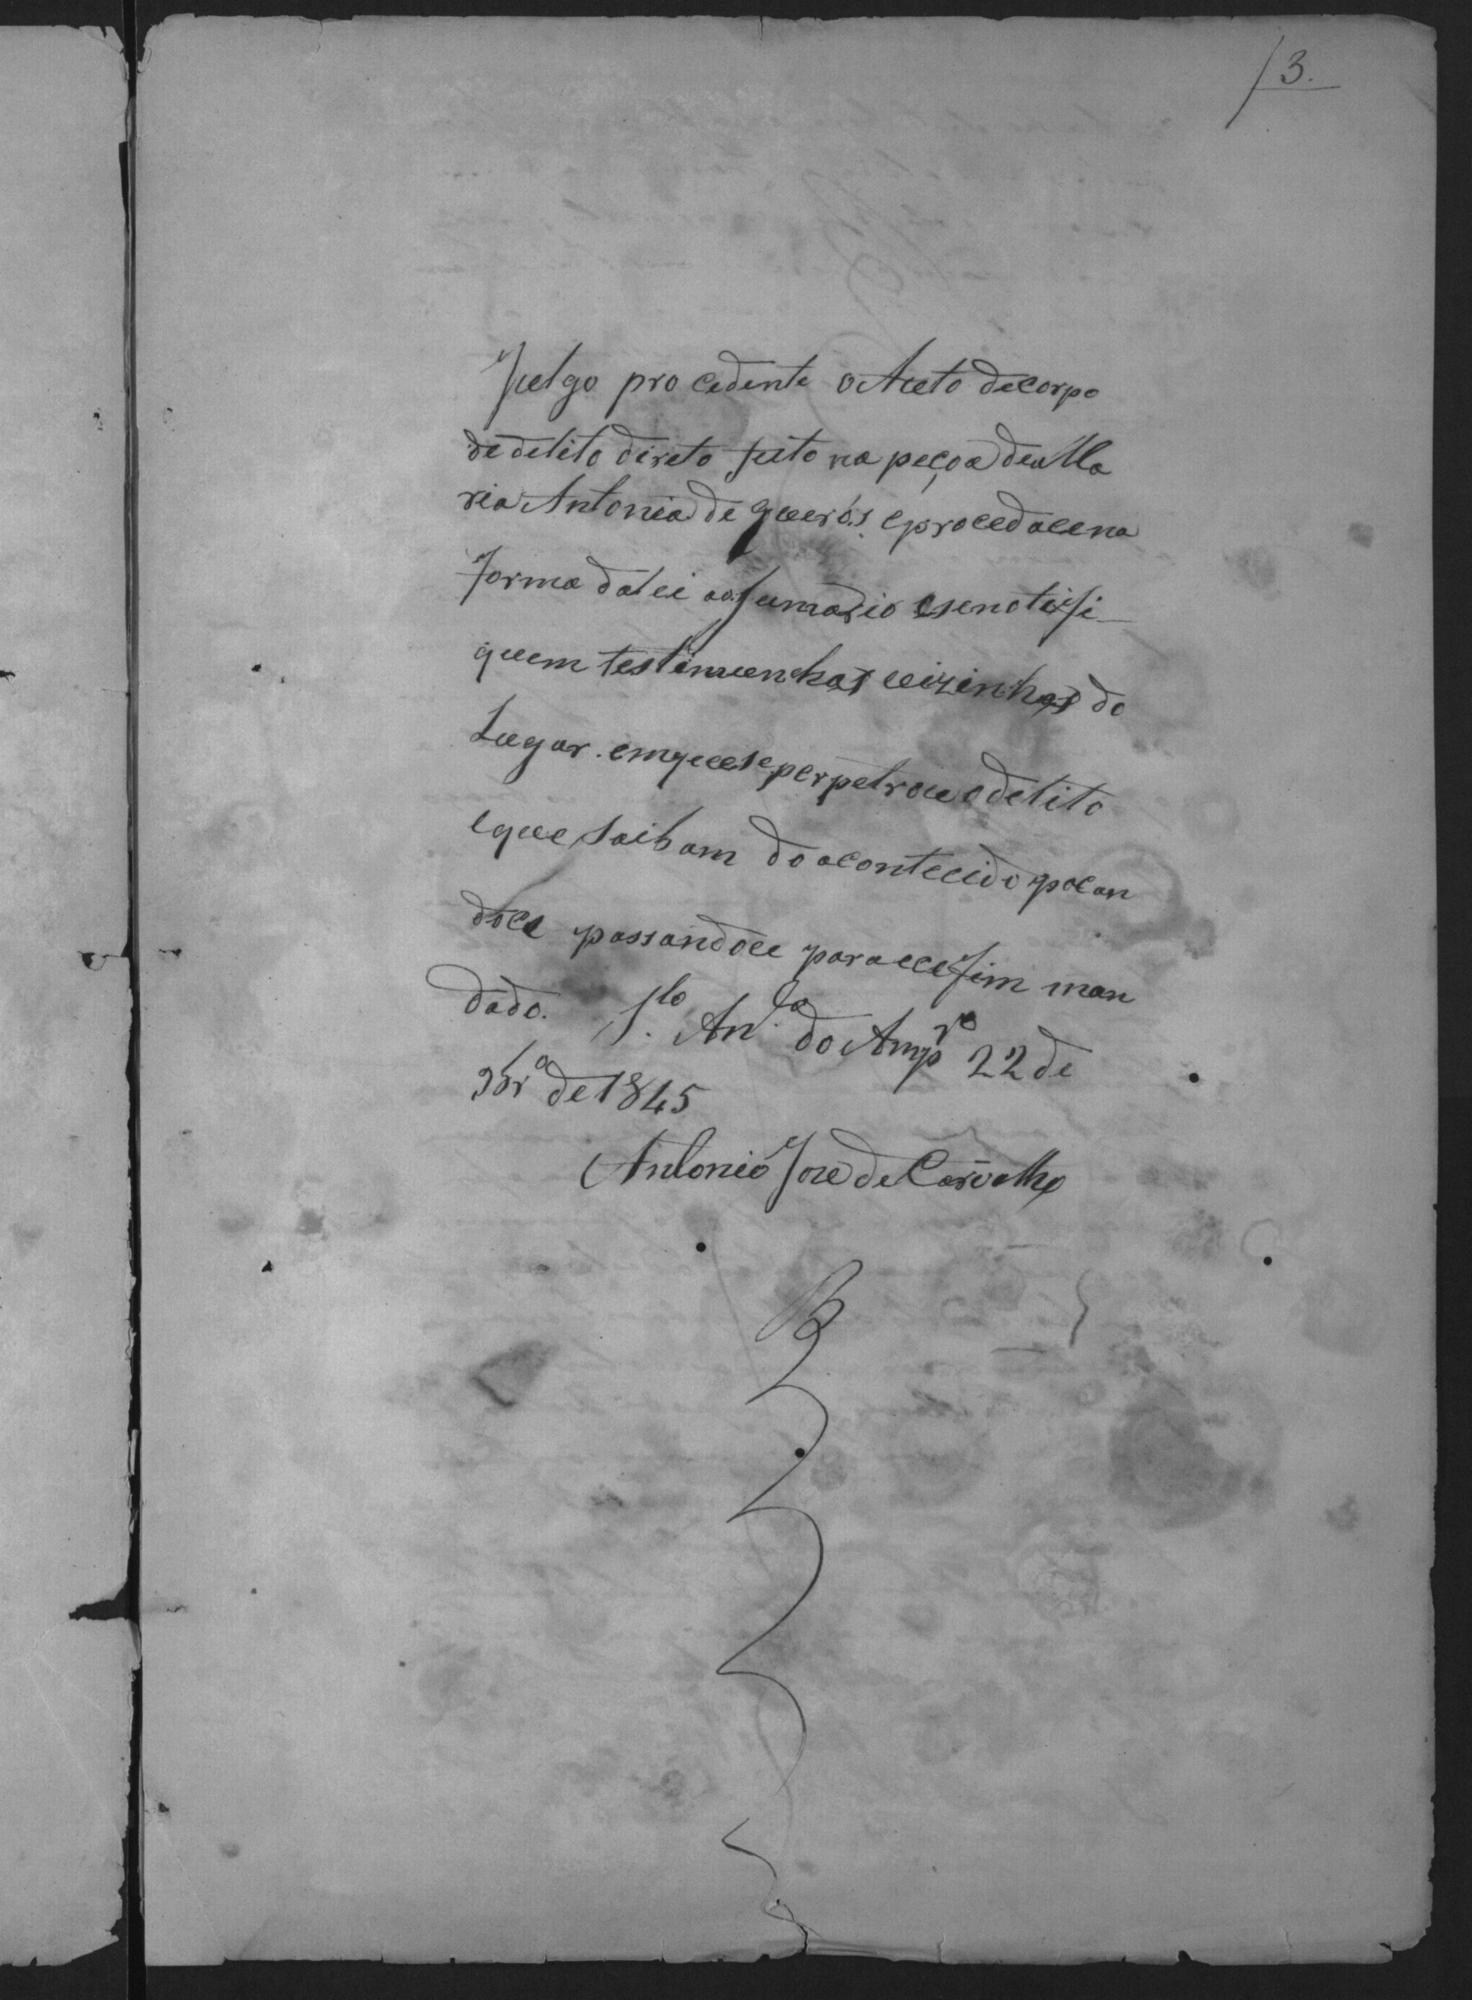 3.
Julgo procedente o Aucto de corpo
de delito direto feito na peçoa de Ma
ria Antonia de Queirós. e procedace na
forma da lei ao sumario e se notifi-
quem testemunhas vizinhas do
Lugar. em que se perpetrou o delito
e que saibam do acontecido
doce passandoce para ece fim man
dado. S.to An.to do Amp.ro 22 de
9br.o de 1845
Antonio Joze de Carvalho